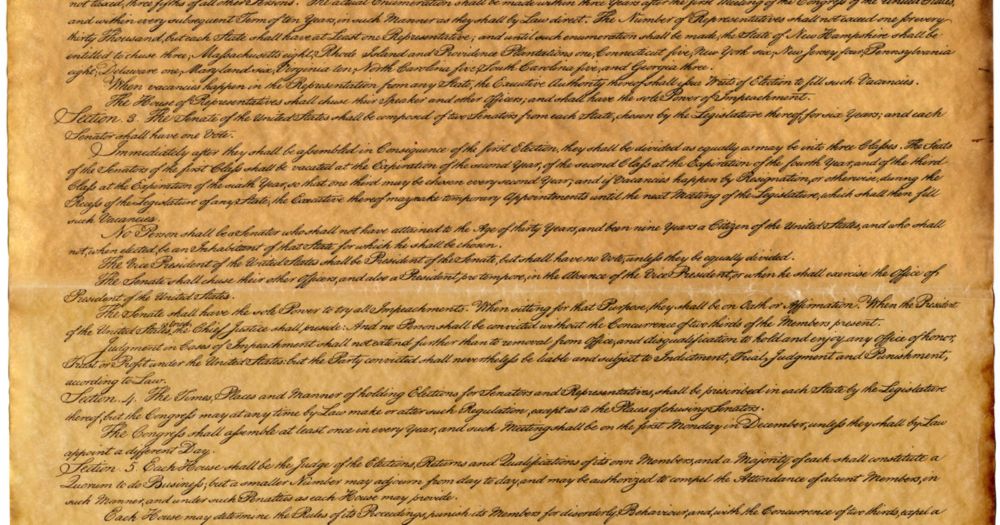 not taxed, three fifths of all other Persons. The actual Enumeration shall be made within three Years after the first Meeting of the Congress of the United States,
and within every subsequent Term of ten Years, in such Manner as they shall by Law direct. The Number of Representatives shall not exceed one for every
thirty Thousand, but each State shall have at Least one Representative; and until such enumeration shall be made, the State of New Hampshire shall be
entitled to chuse three, Massachusetts eight, Rhode Island and Providence Plantations one, Connecticut five, New York six, New Jersey four, Pennsylvania
eight, Delaware one, Maryland six, Virginia ten, North Carolina five, South Carolina five, and Georgia three.
When vacancies happen in the Representation from any State, the Executive Authority thereof shall issue Writs of Election to fill such Vacancies.
The House of Representatives shall chuse their Speaker and other Officers; and shall have the sole Power of Impeachment.
Section. 3. The Senate of the United States shall be composed of two Senators from each State, chosen by the Legislature thereof, for six Years; and each
Senator shall have one Vote.
Immediately after they shall be assembled in Consequence of the first Election, they shall be divided as equally as may be into three Classes. The Seats
of the Senators of the first Class shall be vacated at the Expiration of the second Year, of the second Class at the Expiration of the fourth Year, and of the third
Class at the Expiration of the sixth Year, so that one third may be chosen every second Year; and if Vacancies happen by Resignation, or otherwise, during the
Recess of the Legislature of any State, the Executive thereof may make temporary Appointments until the next Meeting of the Legislature, which shall then fill
such Vacancies.
No Person shall be a Senator who shall not have attained to the Age of thirty Years, and been nine Years a Citizen of the United States, and who shall
not, when elected, be an Inhabitant of that State for which he shall be chosen.
The Vice President of the United States shall be President of the Senate, but shall have no Vote, unless they be equally divided.
The Senate shall chuse their other Officers, and also a President pro tempore, in the Absence of the Vice President, or when he shall exercise the Office of
President of the United States.
The Senate shall have the sole Power to try all Impeachments. When sitting for that Purpose, they shall be on Oath or Affirmation. When the President
of the United States is tried, the Chief Justice shall preside: And no Person shall be convicted without the Concurrence of two thirds of the Members present.
Judgment in Cases of Impeachment shall not extend further than to removal from Office, and disqualification to hold and enjoy any Office of honor,
Trust or Profit under the United States: but the Party convicted shall nevertheless be liable and subject to Indictment, Trial, Judgment and Punishment,
according to Law.
Section. 4. The Times, Places and Manner of holding Elections for Senators and Representatives, shall be prescribed in each State by the Legislature
thereof; but the Congress may at any time by Law make or alter such Regulation, except as to the Places of chusing Senators.
The Congress shall assemble at least once in every Year, and such Meeting shall be on the first Monday in December, unless they shall by Law
appoint a different Day.
Section. 5. Each House shall be the Judge of the Elections, Returns and Qualifications of its own Members, and a Majority of each shall constitute a
Quorum to do Business; but a smaller Number may adjourn from day to day, and may be authorized to compel the Attendance of absent Members, in
such Manner, and under such Penalties as each House may provide.
Each House may determine the Rules of its Proceedings, punish its Members for disorderly Behaviour, and, with the Concurrence of two thirds, expel a